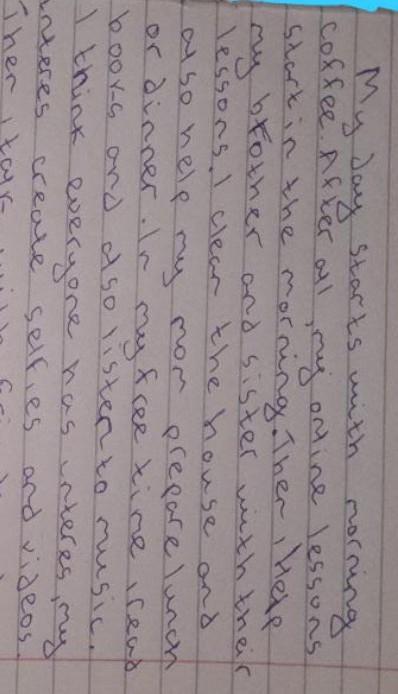 My day starts with morning
coffee. After all, my online lessons
start in the morning. Then i Help
my brother and sister with their
lessons. I clean the house and
also help my mom prepare lunch
or dinner. In my free time i read
books and also listen to music.
I think everyone has interes, my
interes create selfies and videos.
Then i talk with